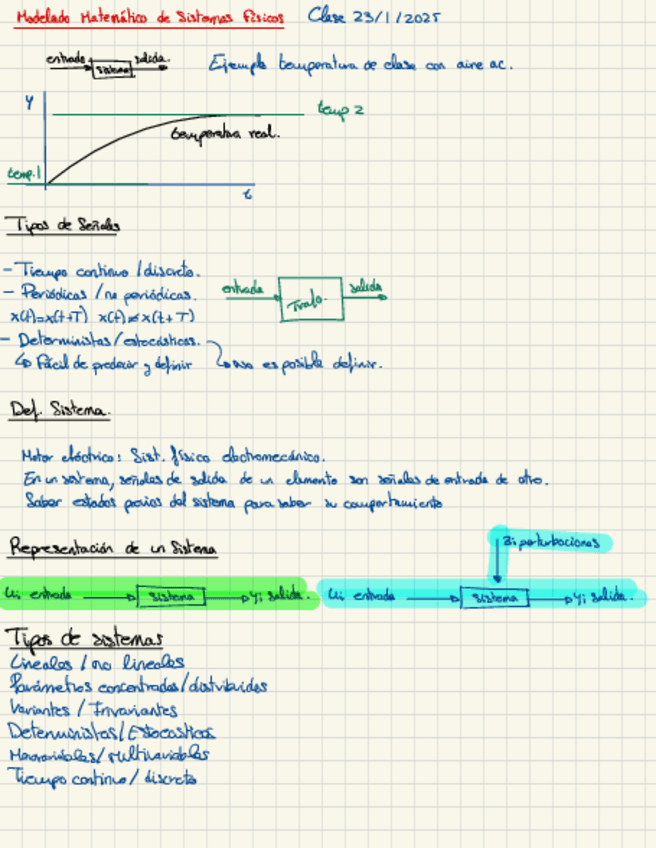 Modelado Matemático de Sistemas Físicos Clase 23/1/2025
entrada sistema salida Ejemplo temperatura de clase con aire ac.
y
temp 2
temperatura real.
temp.1
t
Tipos de Señales
- Tiempo continuo / discreto.
- Periódicas / no periódicas.
entrada Trafo. salida
x(t)=x(t+T) x(t)≠x(t+T)
- Deterministas / estocásticas.
↳ Fácil de predecir y definir ↳ no es posible definir.
Def. Sistema.
Motor eléctrico: Sist. físico electromecánico.
En un sistema, señales de salida de un elemento son señales de entrada de otro.
Saber estados previos del sistema para saber su comportamiento
Representación de un Sistema
Zi perturbaciones
Ui entrada sistema Yi salida. Ui entrada sistema Yi salida.
Tipos de sistemas
Lineales / no lineales
Parámetros concentrados/distribuidos
Variantes / Invariantes
Deterministas/Estocásticos
Monovariables/multivariables
Tiempo continuo / discreto